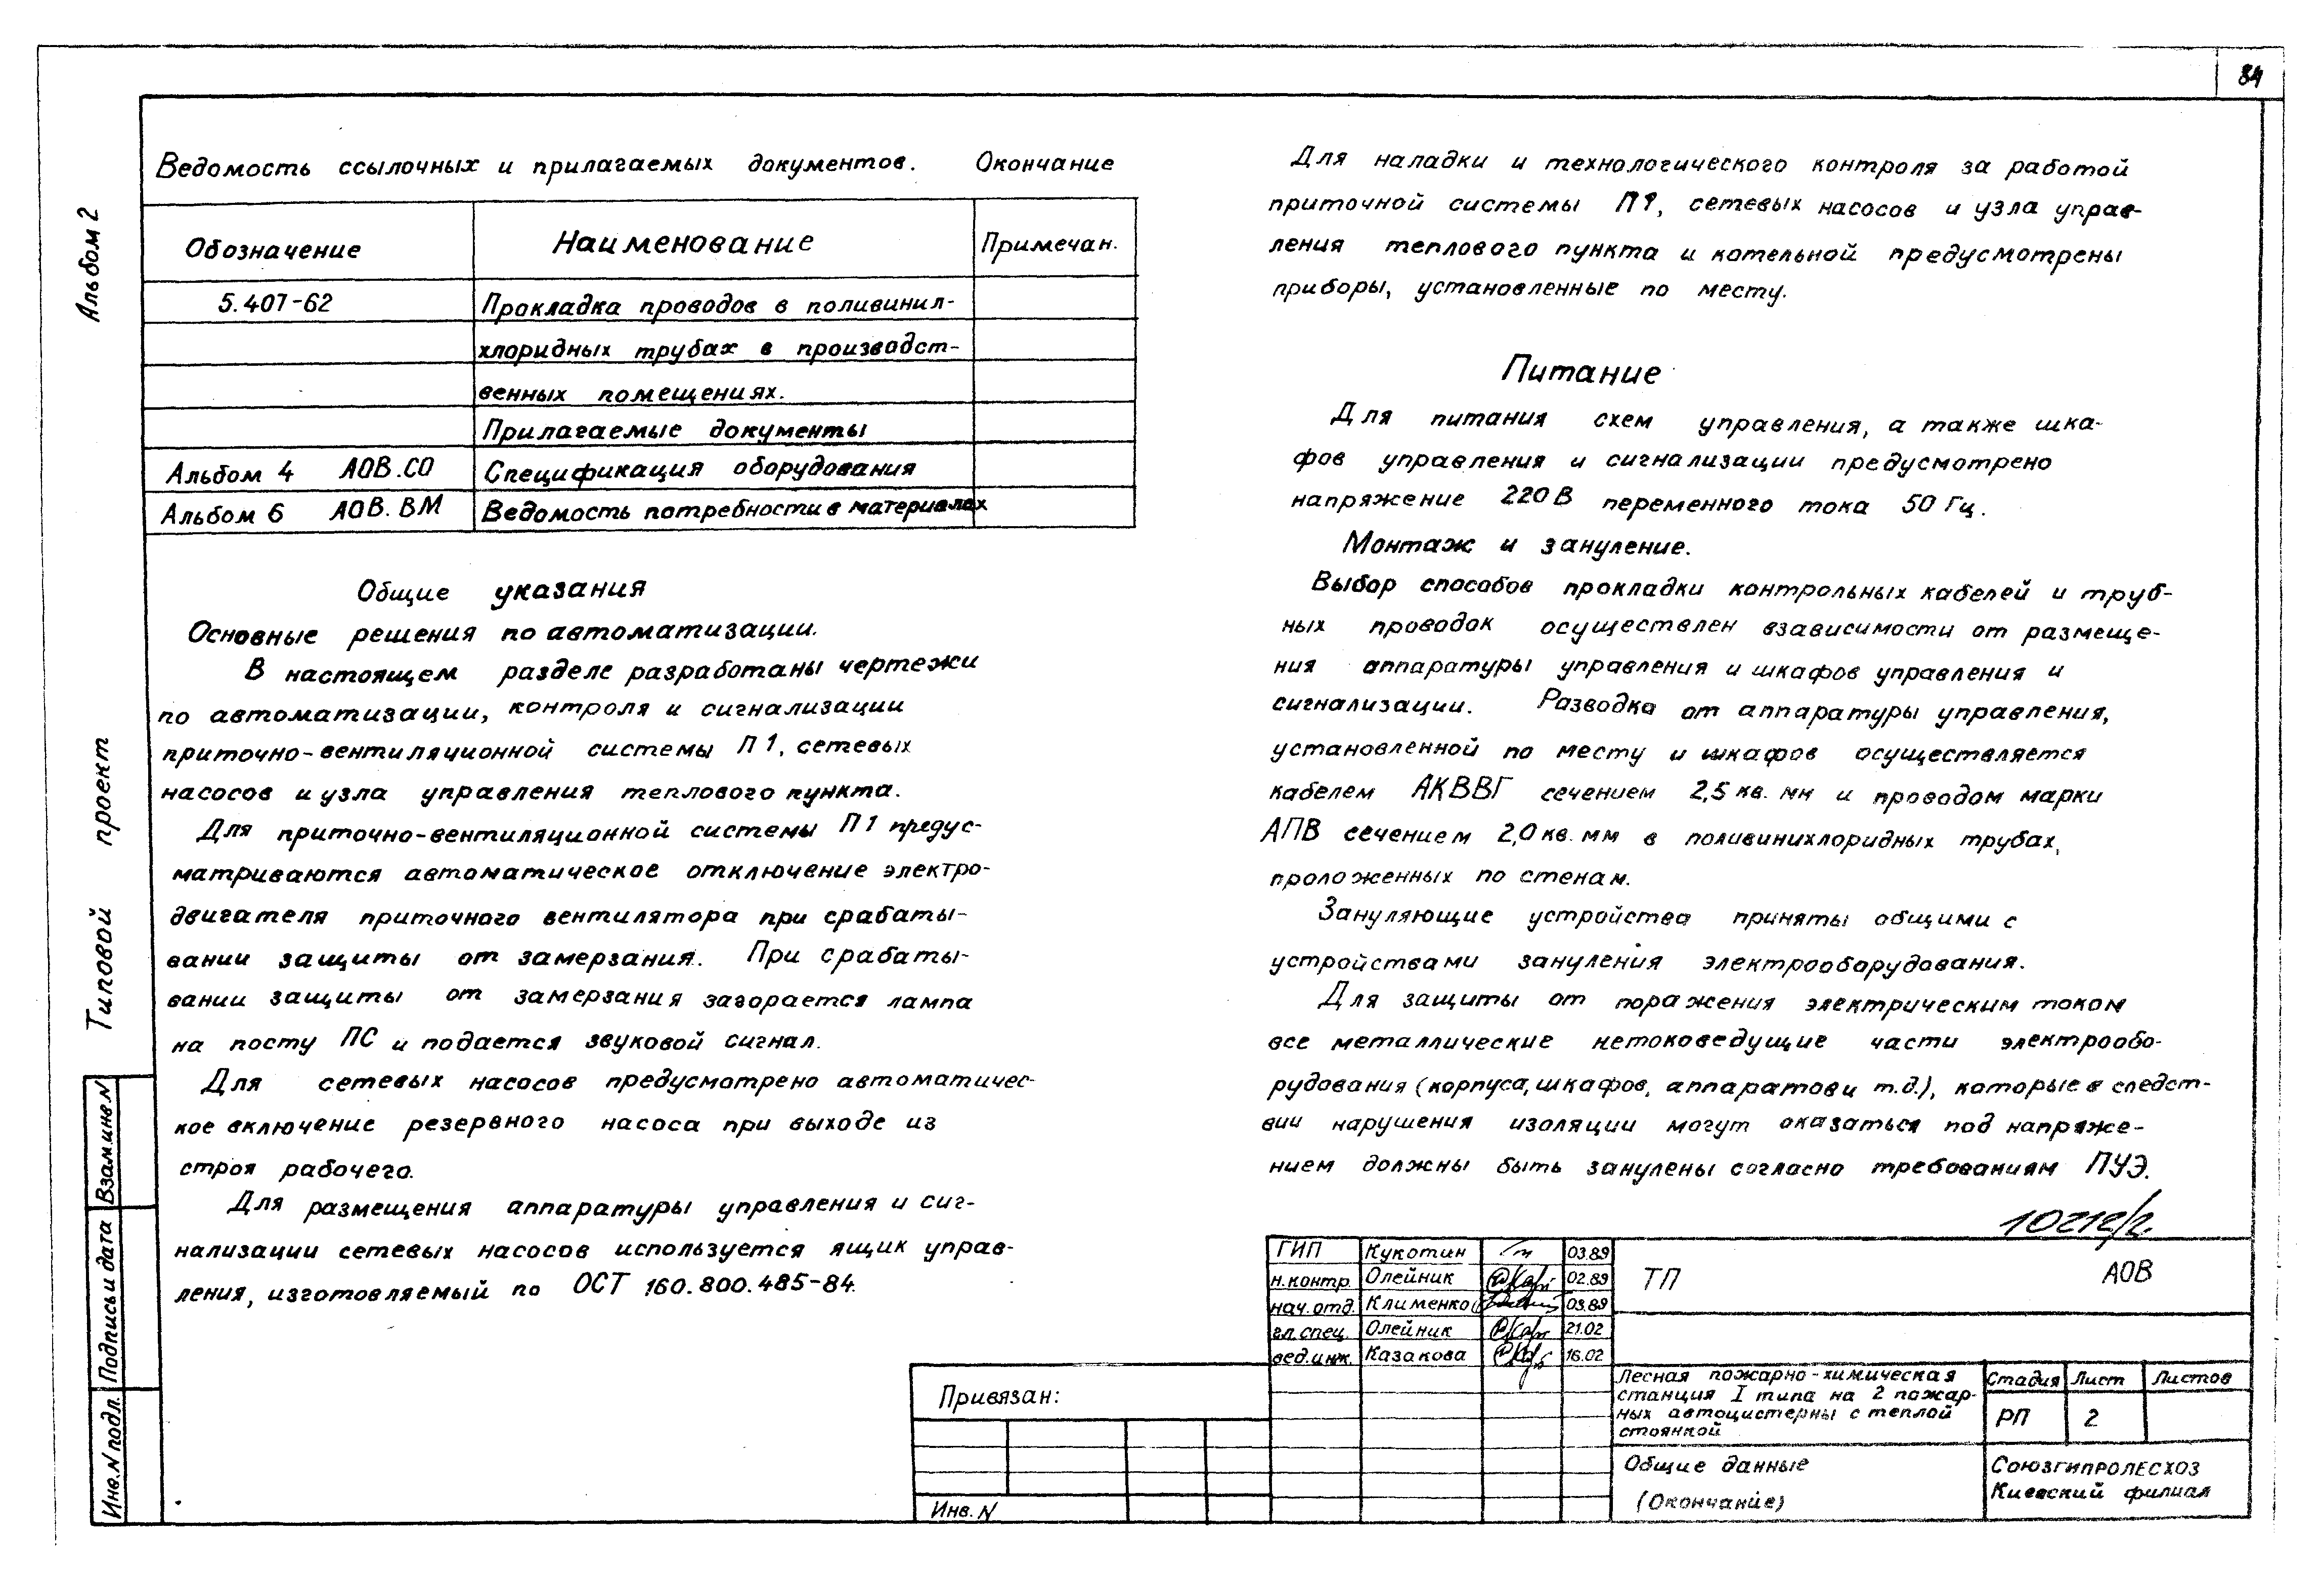 84
Альбом 2
Типовой проект
Ведомость ссылочных и прилагаемых документов. Окончание
Обозначение Наименование Примечан.
5.407-62 Прокладка проводов в поливинил-
хлоридных трубах в производст-
венных помещениях.
Прилагаемые документы
Альбом 4 АОВ.СО Спецификация оборудования
Альбом 6 АОВ.ВМ Ведомость потребности в материалах
Общие указания
Основные решения по автоматизации.
В настоящем разделе разработаны чертежи
по автоматизации, контроля и сигнализации
приточно-вентиляционной системы П1, сетевых
насосов и узла управления теплового пункта.
Для приточно-вентиляционной системы П1 предус-
матриваются автоматическое отключение электро-
двигателя приточного вентилятора при срабаты-
вании защиты от замерзания. При срабаты-
вании защиты от замерзания загорается лампа
на посту ПС и подается звуковой сигнал.
Для сетевых насосов предусмотрено автоматичес-
кое включение резервного насоса при выходе из
строя рабочего.
Для размещения аппаратуры управления и сиг-
нализации сетевых насосов используется ящик управ-
ления, изготовляемый по ОСТ 160.800.485-84.
Для наладки и технологического контроля за работой
приточной системы П1, сетевых насосов и узла управ-
ления теплового пункта и котельной предусмотрены
приборы, установленные по месту.
Питание
Для питания схем управления, а также шка-
фов управления и сигнализации предусмотрено
напряжение 220В переменного тока 50 Гц.
Монтаж и зануление.
Выбор способов прокладки контрольных кабелей и труб-
ных проводок осуществлен взависимости от размеще-
ния аппаратуры управления и шкафов управления и
сигнализации. Разводка от аппаратуры управления,
установленной по месту и шкафов осуществляется
кабелем АКВВГ сечением 2,5 кв. мм и проводом марки
АПВ сечением 2,0 кв. мм в поливинихлоридных трубах,
проложенных по стенам.
Зануляющие устройства приняты общими с
устройствами зануления электрооборудования.
Для защиты от поражения электрическим током
все металлические нетоковедущие части электрообо-
рудования (корпуса, шкафов, аппаратов и т.д.), которые в следст-
вии нарушения изоляции могут оказаться под напряже-
нием должны быть занулены согласно требованиям ПУЭ.
10212/2
ГИП Кукотин 03.89
н.контр. Олейник 02.89
нач.отд. Клименко 03.89
гл.спец. Олейник 21.02
вед.инж. Казакова 16.02
ТП АОВ
Лесная пожарно-химическая
станция I типа на 2 пожар-
ных автоцистерны с теплой
стоянкой
Стадия Лист Листов
РП 2
Общие данные
(Окончание)
Союзгипролесхоз
Киевский филиал
Привязан:
Инв. N
Взам.инв.N
Подпись и дата
Инв.N подл.